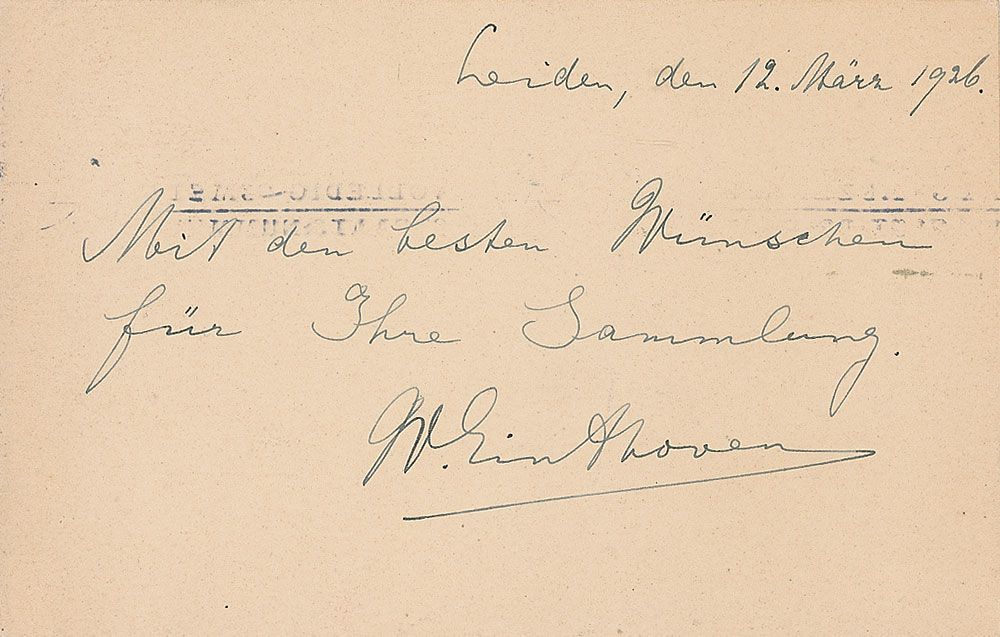 Leiden, den 12. März 1926.
Mit den besten Wünschen
für Ihre Sammlung.
W. Einthoven